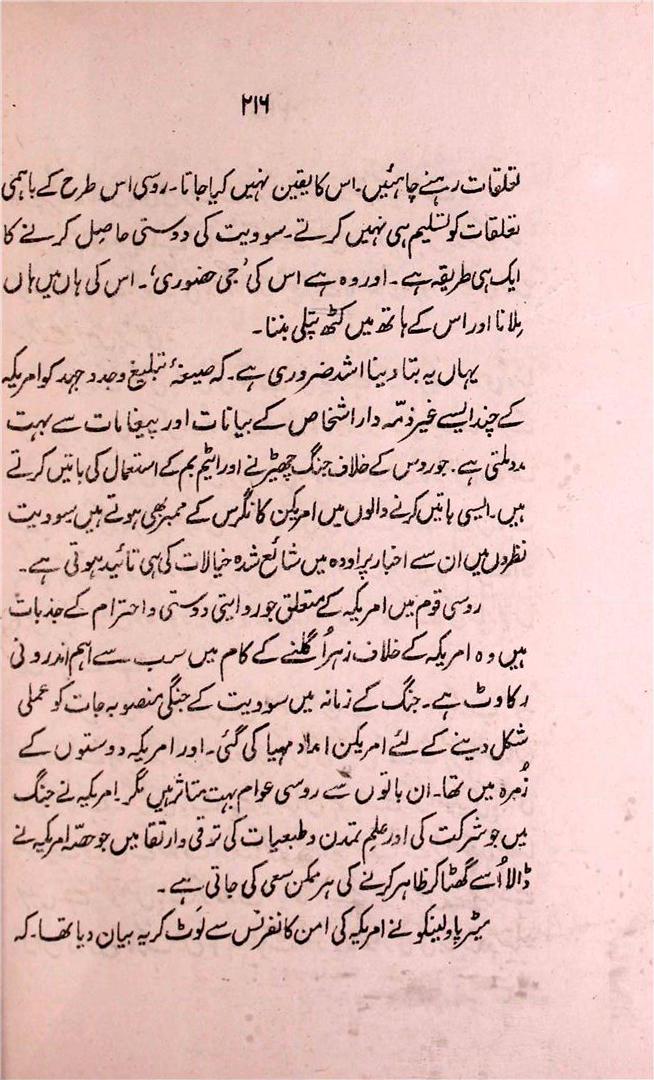 ۲۱۶
تعلقات رہنے چاہئیں۔ اس کا یقین نہیں کیا جاتا۔ روسی اس طرح کے باہمی
تعلقات کو تسلیم ہی نہیں کرتے۔ سوویت کی دوستی حاصل کرنے کا
ایک ہی طریقہ ہے۔ اور وہ ہے اس کی ’جی حضوری‘۔ اس کی ہاں میں ہاں
مِلانا اور اس کے ہاتھ میں کٹھ پتلی بننا۔
یہاں یہ بتا دینا اشد ضروری ہے۔ کہ صیغۂ تبلیغ و جدوجہد کو امریکہ
کے چند ایسے غیر ذمّہ دار اشخاص کے بیانات اور پیغامات سے بہت
مدد ملتی ہے۔ جو روس کے خلاف جنگ چھیڑنے اور ایٹم بم کے استعمال کی باتیں کرتے
ہیں۔ ایسی باتیں کرنے والوں میں امریکن کانگرس کے ممبر بھی ہوتے ہیں سوویت
نظروں میں ان سے اخبار پراودہ میں شائع شدہ خیالات کی ہی تائید ہوتی ہے۔
روسی قوم میں امریکہ کے متعلق جو روایتی دوستی و احترام کے جذبات
ہیں وہ امریکہ کے خلاف زہر اُگلنے کے کام میں سب سے اہم اندرونی
رکاوٹ ہے۔ جنگ کے زمانہ میں سوویت کے جنگی منصوبہ جات کو عملی
شکل دینے کے لئے امریکن امداد مہیا کی گئی۔ اور امریکہ دوستوں کے
زُمرہ میں تھا۔ ان باتوں سے روسی عوام بہت متاثر ہیں مگر امریکہ نے جنگ
میں جو شرکت کی اور علمِ تمدن و طبعیات کی ترقی و ارتقا میں جو حصّہ امریکہ نے
ڈالا اُسے گھٹا کر ظاہر کرنے کی ہر ممکن سعی کی جاتی ہے۔
میٹر پاولینکو نے امریکہ کی امن کانفرنس سے لَوٹ کر یہ بیان دیا تھا۔ کہ